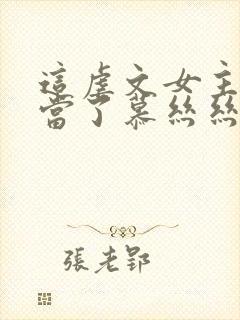 這虐文女主
當了慕絲絲
張老郢